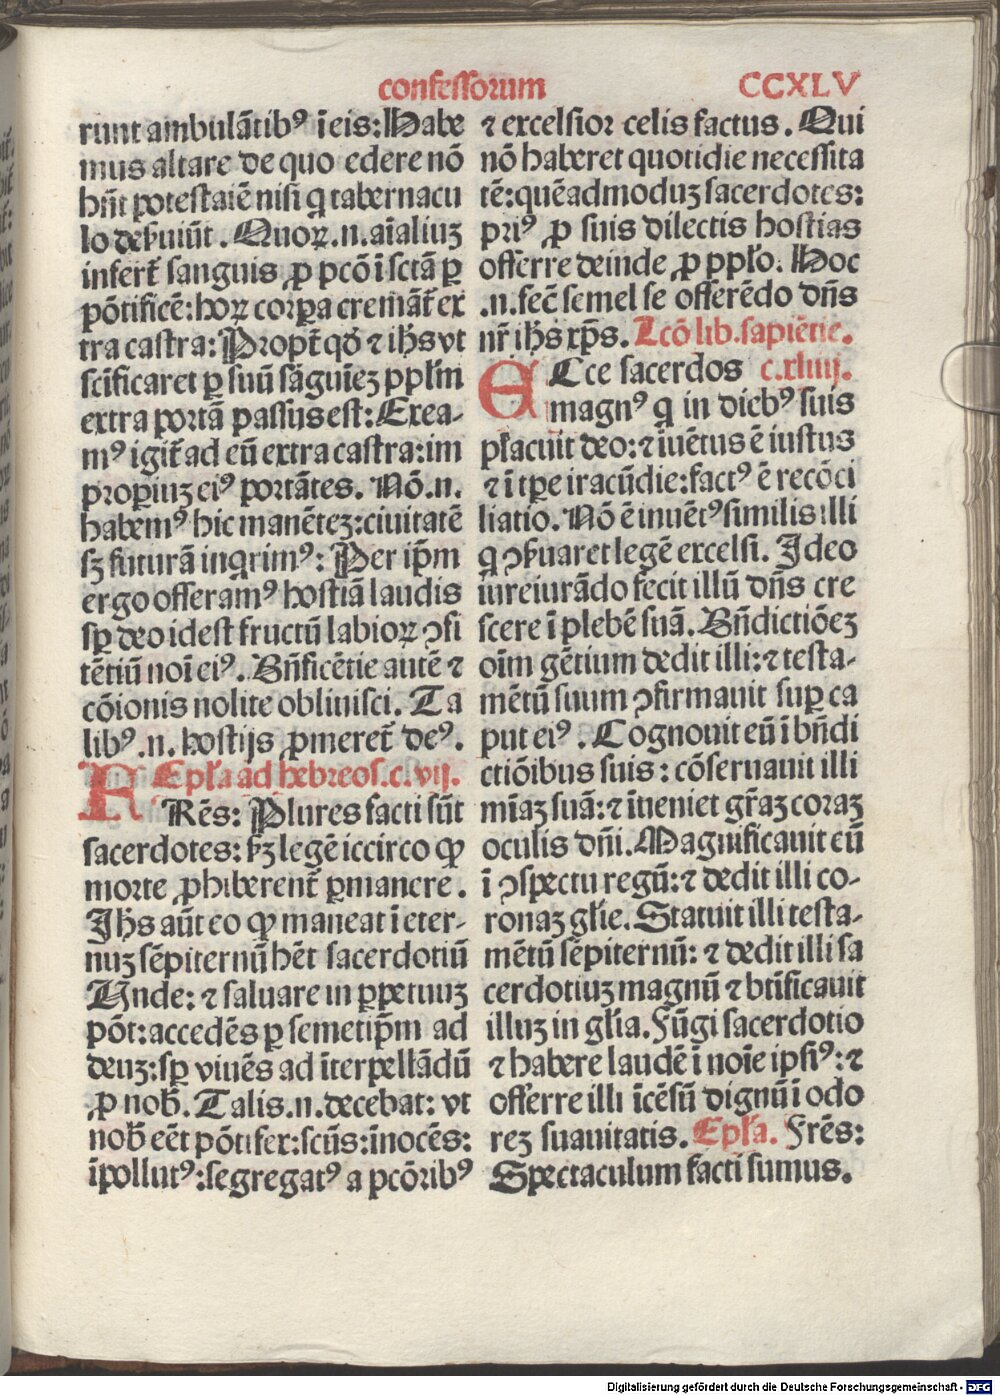 confessorum CCXLV
runt ambulãtibꝰ ĩ eis: Habe
mus altare de quo edere nõ
hñt potestatẽ nisi q tabernacu
lo deẜuiũt. Quoꝝ.n. aĩaliuz
infert̃ sanguis ꝓ pcõ ĩ sctã ꝑ
põtificẽ: hoꝝ corꝑa cremãt̃ ex
tra castra: Propt̃ qđ ⁊ ihs vt
scĩficaret ꝑ suũ sãguĩez ppl̃m
extra portã passus est: Exea-
mꝰ igit̃ ad eũ extra castra: im
properiuz eiꝰ portãtes. Nõ.n.
habemꝰ hic manẽtez: ciuitatẽ
sz futurã inqrimꝰ: Per ip̃m
ergo offeramꝰ hostiã laudis
sꝑ deo idest fructũ labioꝝ ꝯfi
tẽtiũ noĩ eiꝰ. Bñficẽtie autẽ ⁊
cõionis nolite obliuisci. Ta
libꝰ.n. hostijs ꝓmeret̃ deꝰ.
Epl̃a ad hebreos. c. vij.
FRẽs: Plures facti sũt
sacerdotes: ẜz legẽ iccirco ꝙ
morte ꝓhiberent̃ ꝑmanere.
Jhs aũt eo ꝙ maneat ĩ eter-
nuz sẽpiternũ hẽt sacerdotiũ
Unde: ⁊ saluare in ꝑpetuuz
põt: accedẽs ꝑ semetip̃m ad
deuz: sꝑ viuẽs ad ĩterpellãdũ
ꝓ nob̃. Talis.n. decebat: vt
nob̃ eẽt põtifex: scũs: ĩnocẽs:
ĩpollutꝰ: segregatꝰ a pcõribꝰ
⁊ excelsior celis factus. Qui
nõ haberet quotidie necessita
tẽ: quẽadmoduz sacerdotes:
priꝰ ꝓ suis dilectis hostias
offerre deinde ꝓ ppl̃o. Hoc
.n. fec̃ semel se offerẽdo dñs
nr̃ ihs xp̃s. Lcõ lib. sapiẽtie.
ECce sacerdos c. xliiij.
magnꝰ q in diebꝰ suis
placuit deo: ⁊ ĩuẽtus ẽ iustus
⁊ ĩ tꝑe iracũdie: factꝰ ẽ recõci
liatio. Nõ ẽ inuẽtꝰ similis illi
q ꝯẜuaret legẽ excelsi. Jdeo
iureiurãdo fecit illũ dñs cre
scere ĩ plebẽ suã. Bñdictiõez
oĩm gẽtium dedit illi: ⁊ testa-
mẽtũ suum ꝯfirmauit suꝑ ca
put eiꝰ. Cognouit eũ ĩ bñdi
ctiõibus suis: cõseruauit illi
mĩaz suã: ⁊ ĩueniet gr̃az coraz
oculis dñi. Magnificauit eũ
ĩ ꝯspectu regũ: ⁊ dedit illi co-
ronaz gl̃ie. Statuit illi testa-
mẽtũ sẽpiternũ: ⁊ dedit illi sa
cerdotiuz magnũ ⁊ bt̃ificauit
illuz in gl̃ia. Fũgi sacerdotio
⁊ habere laudẽ ĩ noĩe ipsiꝰ: ⁊
offerre illi ĩcẽsũ dignũ ĩ odo
rez suauitatis. Epl̃a. Frẽs:
Spectaculum facti sumus.
Digitalisierung gefördert durch die Deutsche Forschungsgemeinschaft - DFG